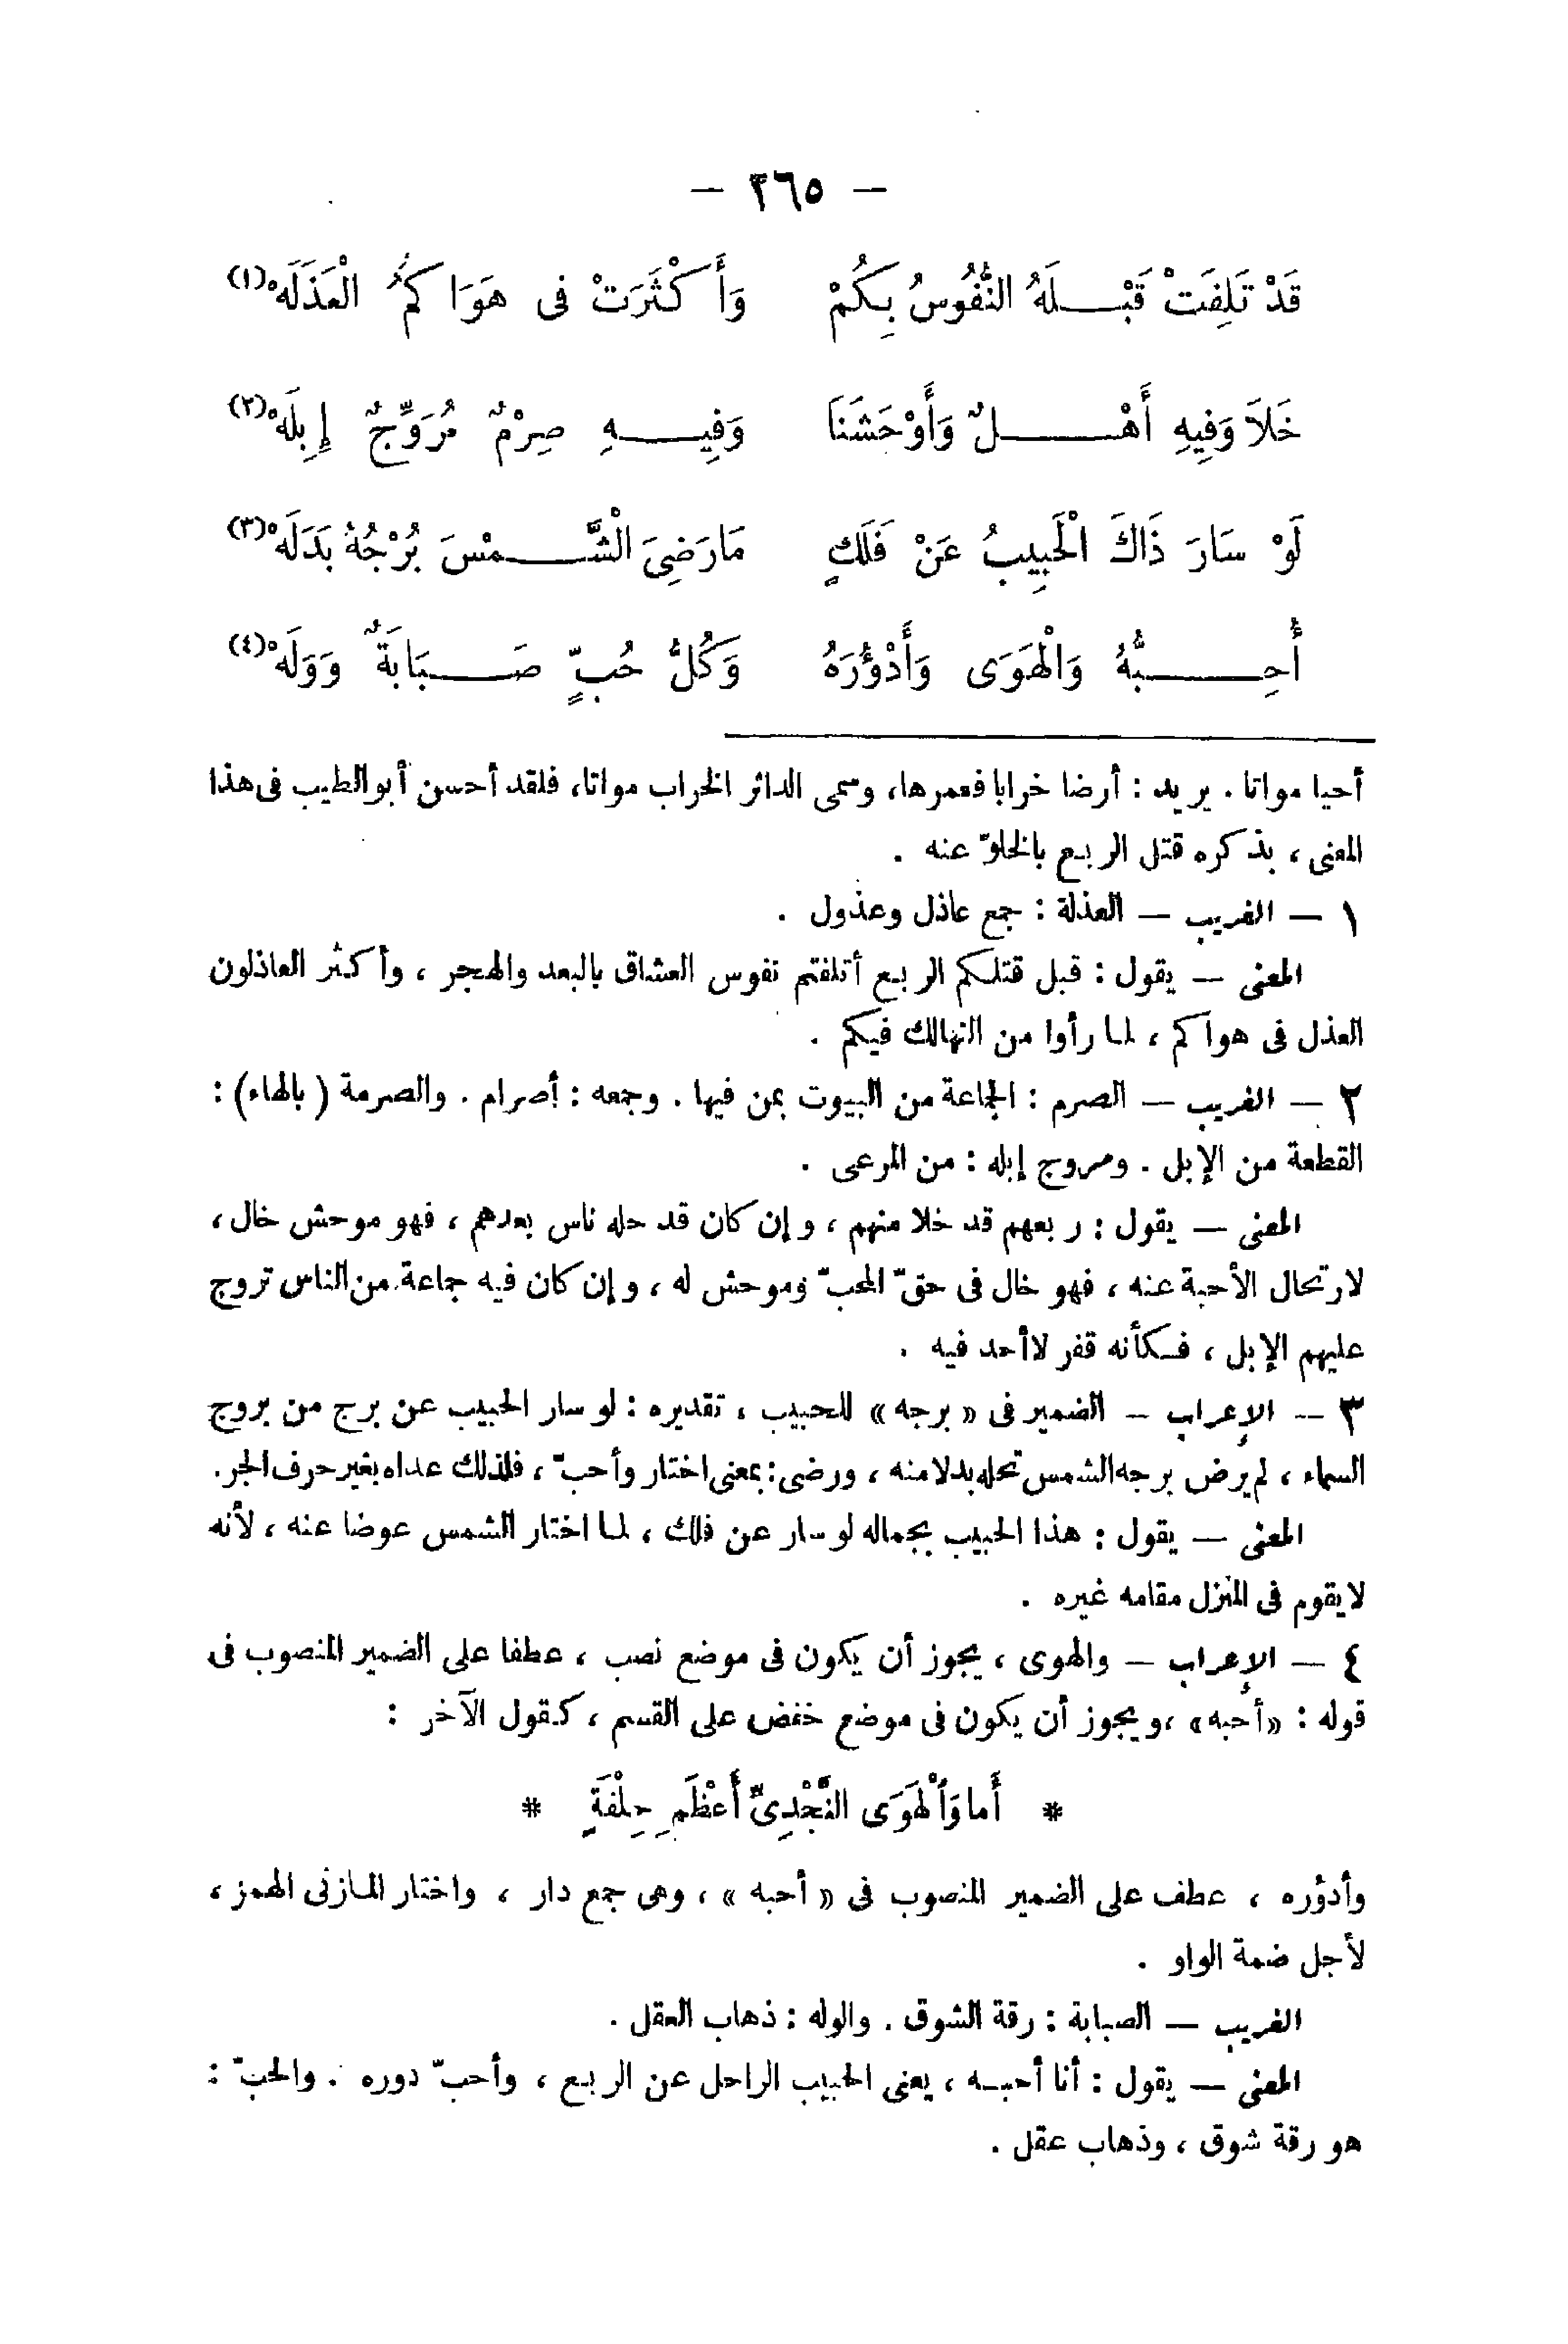 — ٢٦٥ —
قَدْ تَلِفَتْ قَبْـلَهُ النُّفُوسُ بِكُمْ وَأَكْثَرَتْ فى هَوَاكُمُ الْعَذَلَهْ(١)
خَلَا وَفِيهِ أَهْـلٌ وَأَوْحَشَنَا وَفِيـهِ صِرْمٌ مُرَوِّجٌ إِبِلَهْ(٢)
لَوْ سَارَ ذَاكَ الْحَبِيبُ عَنْ فَلَكٍ مَارَضِىَ الْشَّـمْسَ بُرْجُهُ بَدَلَهْ(٣)
أُحِـبُّهُ وَالْهَوَى وَأَدْؤُرَهُ وَكُلُّ حُبٍّ صَـبَابَةٌ وَوَلَهْ(٤)
أحيا مواتا . يريد : أرضا خرابا فعمرها، وسمى الدائر الخراب مواتا، فلقد أحسن أبوالطيب فى هذا
المعنى ، بذكره قتل الربع بالخلوّ عنه .
١ — الغريب — العذلة : جمع عاذل وعذول .
المعنى — يقول : قبل قتلكم الربع أتلفتم نفوس العشاق بالبعد والهجر ، وأكثر العاذلون
العذل فى هواكم ، لما رأوا من التهالك فيكم .
٢ — الغريب — الصرم : الجماعة من البيوت بمن فيها . وجمعه : أصرام . والصرمة ( بالهاء) :
القطعة من الإبل . ومروج إبله : من المرعى .
المعنى — يقول : ربعهم قد خلا منهم ، وإن كان قد حله ناس بعدهم ، فهو موحش خال ،
لارتحال الأحبة عنه ، فهو خال فى حقّ المحبّ وموحش له ، وإن كان فيه جماعة من الناس تروج
عليهم الإبل ، فكأنه قفر لا أحد فيه .
٣ — الإعراب — الضمير فى « برجه » للحبيب ، تقديره : لو سار الحبيب عن برج من بروج
السماء ، لم يرض برجه الشمس تحله بدلا منه ، ورضى : بمعنى اختار وأحبّ ، فلذلك عداه بغير حرف الجر.
المعنى — يقول : هذا الحبيب بجماله لو سار عن فلك ، لما اختار الشمس عوضا عنه ، لأنه
لايقوم فى المنزل مقامه غيره .
٤ — الإعراب — والهوى ، يجوز أن يكون فى موضع نصب ، عطفا على الضمير المنصوب فى
قوله : «أحبه» ،ويجوز أن يكون فى موضع خفض على القسم ، كقول الآخر :
* أَما وَالْهَوَى النَّجْدِىِّ أَعْظَمِ حِلْفَةٍ *
وأدؤره ، عطف على الضمير المنصوب فى « أحبه » ، وهى جمع دار ، واختار المازنى الهمز ،
لأجل ضمة الواو .
الغريب — الصبابة : رقة الشوق . والوله : ذهاب العقل .
المعنى — يقول : أنا أحبـه ، يعنى الحبيب الراحل عن الربع ، وأحبّ دوره . والحبّ :
هو رقة شوق ، وذهاب عقل .